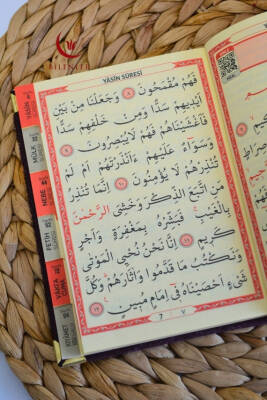 YÂSÎN SÛRESİ
فَهُمْ مُقْمَحُونَ ﴿٨﴾ وَجَعَلْنَا مِنْ بَيْنِ
اَيْدِيهِمْ سَدًّا وَمِنْ خَلْفِهِمْ سَدًّا
فَاَغْشَيْنَاهُمْ فَهُمْ لَا يُبْصِرُونَ ﴿٩﴾
وَسَوَآءٌ عَلَيْهِمْ ءَاَنْذَرْتَهُمْ اَمْ لَمْ
تُنْذِرْهُمْ لَا يُؤْمِنُونَ ﴿١٠﴾ اِنَّمَا تُنْذِرُ
مَنِ اتَّبَعَ الذِّكْرَ وَخَشِىَ الرَّحْمٰنَ
بِالْغَيْبِ فَبَشِّرْهُ بِمَغْفِرَةٍ وَاَجْرٍ
كَرِيمٍ ﴿١١﴾ اِنَّا نَحْنُ نُحْيِى الْمَوْتٰى
وَنَكْتُبُ مَا قَدَّمُوا وَاٰثَارَهُمْ وَكُلَّ
شَىْءٍ اَحْصَيْنَاهُ فِىٓ اِمَامٍ مُبِينٍ ﴿١٢﴾
7 ٧
YÂSÎN
MÜLK
NEBE
FETİH
VÂKIA